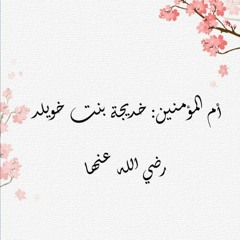 أم المؤمنين: خديجة بنت خويلد
رضي الله عنها